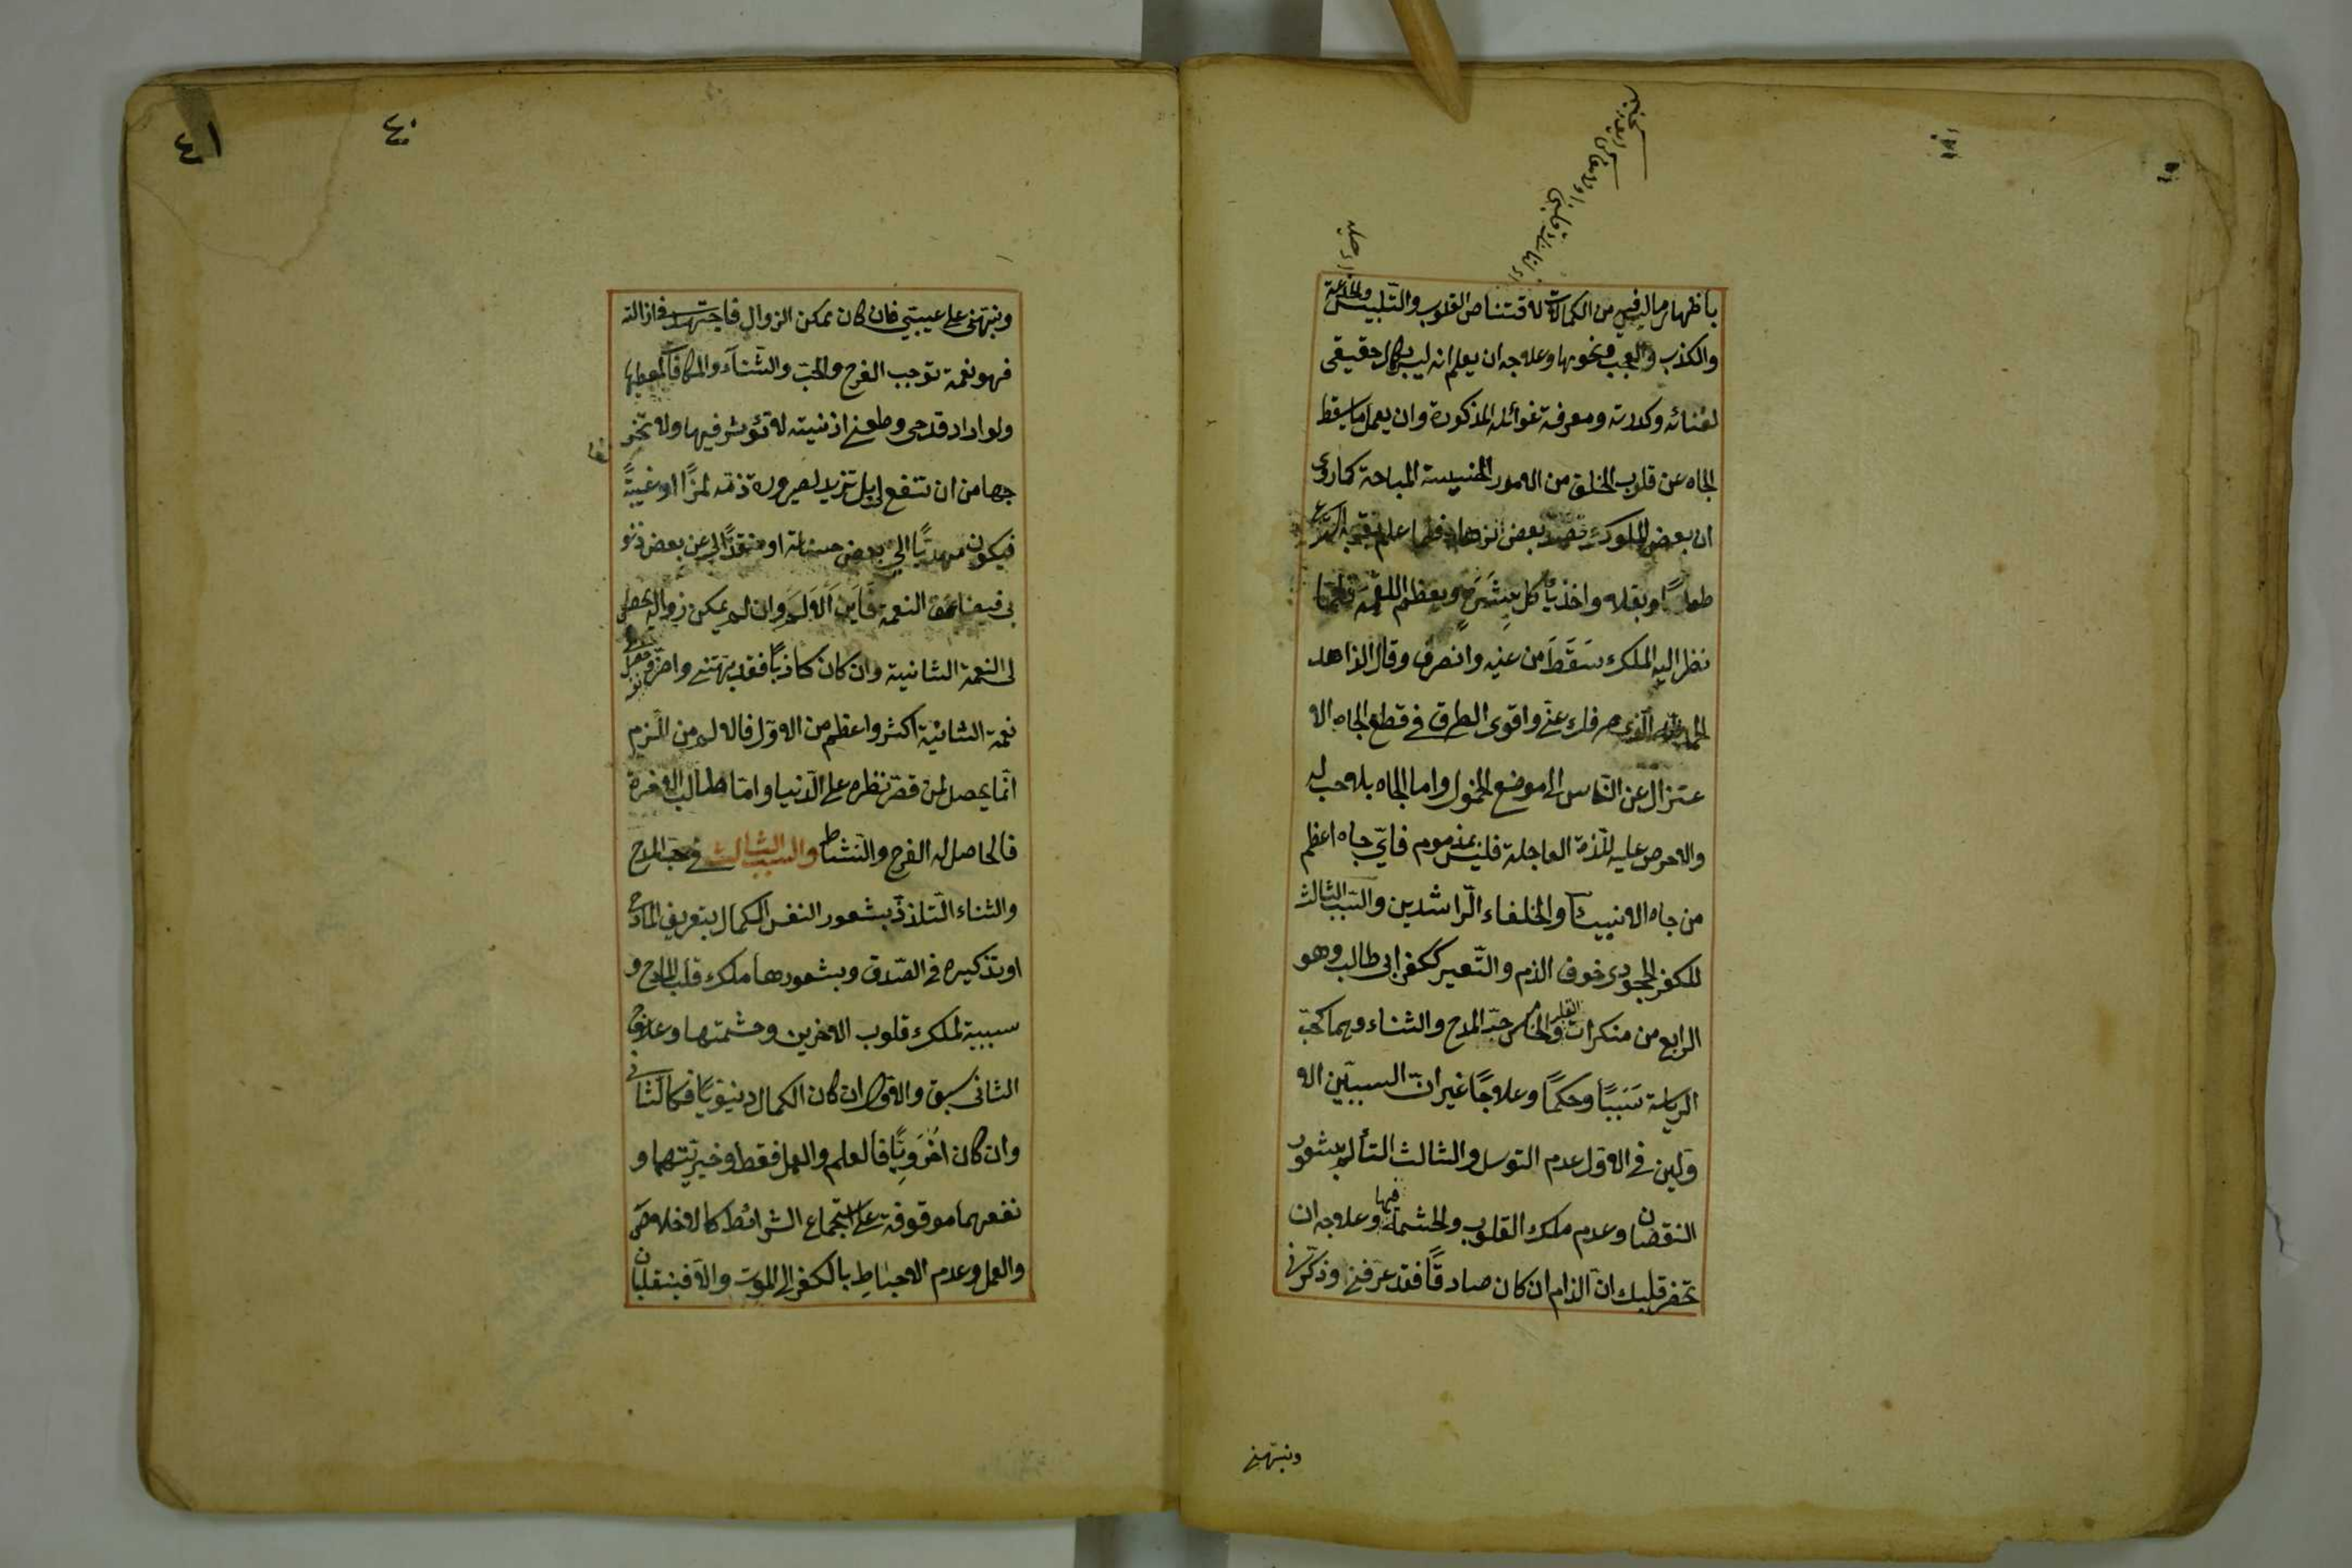 باظهار ما ليس فيه من الكمالات لاقتناص القلوب والتلبيس والخداعة
والكذب والعجب ونحوها وعلاجه ان يعلم انه ليس بكمال حقيقي
لفنائه وكدورته ومعرفة غوائله المذكورة وان يعمل ما يسقط
الجاه عن قلوب الخلق من الامور الخسيسة المباحة كما روى
ان بعض الملوك قصد بعض الزهاد فلما علم بقربه استدعى
طعاما وبقلا واخذ يأكل بِشَرَهٍ ويعظم اللقمة فلما
نظر اليه الملك سَقَطَ من عينه وانصرف وقال الزاهد
الحمد لله الذى صرفك عنّى واقوى الطرق فى قطع الجاه الا
عتزال عن الناس الى موضع الخمول واما الجاه بلا حب له
ولا حرص عليه للذة العاجلة فليس بمذموم فايّ جاه اعظم
من جاه الانبياء والخلفاء الرّاشدين والسبب الثالث
للكفر الجحودى خوف الذم والتّعيير ككفر ابى طالب وهو
الرابع من منكرات القلب والخامس حبّ المدح والثناء وهما كحبّ
الرياسة سَبَبًا وحكمًا وعلاجًا غير انّ السببين الا
ولين فى الاول عدم التوسل والثالث التألم بشعور
النقصان وعدم ملك القلوب والحشمة فيها وعلاجه ان
تحضر قلبك ان الذام ان كان صادقًا فقد عرفنى وذكّرنى
ونبّهنى
٤٠
٤١
ونبّهنى على عيبتي فان كان يمكن الزوال فاجتهد فى ازالته
فهو نعمة توجب الفرح والحبّ والثناء والمكافأة لمعطيها
ولو اراد قدحى وطعنى اذ نيته لا تؤثر فيها ولا تخر
جها من ان تنفع لى بل تزيد لصيرورة ذمّه لمزًا او غيبةً
فيكون مهديًا الىّ بعض حسناته او منقذًا لى عن بعض ذنو
بى فيضاعف النعمة فاين الالم وان لم يمكن زواله يحصل
لى النعمة الثانية وان كان كاذبًا فقد بهتنى واضرّ نفسه
نعمة الثانية اكثر واعظم من الاوّل فالالم من الذم
انّما يحصل لمن قصر نظره على الدّنيا وامّا طالب الاخرة
فالحاصل له الفرح والنشاط والسبب الثالث فى حبّ المدح
والثناء التلذذ بشعور النفس الكمال بتعريف المادح
او تذكيره فى الصّدق وبشعورها ملك قلب المادح و
سببية لملك قلوب الاخرين وحشمتها وعلاج
الثانى سبق والاوّل ان كان الكمال دنيويًا فكالثانى
وان كان اُخْرَوِيًّا فالعلم والعمل فقط وخيريّتهما و
نفعهما موقوفة على اجتماع الشرائط كالاخلاص
والعمل وعدم الاحباط بالكفر الى الموت والّا فينقلبان